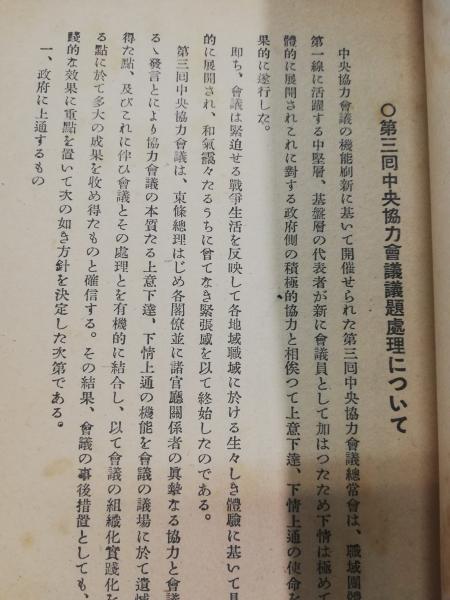 ○第三回中央協力會議議題處理について
中央協力會議の機能刷新に基いて開催せられた第三回中央協力會議總常會は、職域團體
第一線に活躍する中堅層、基盤層の代表者が新に會議員として加はつたため下情は極めて
體的に展開されこれに對する政府側の積極的協力と相俟つて上意下達、下情上通の使命を
果的に遂行した。
即ち、會議は緊迫せる戰爭生活を反映して各地域職域に於ける生々しき體驗に基いて具
的に展開され、和氣靄々たるうちに曾てなき緊張感を以て終始したのである。
第三回中央協力會議は、東條總理はじめ各閣僚並に諸官廳關係者の眞摯なる協力と會議
るゝ發言とにより協力會議の本質たる上意下達、下情上通の機能を會議の議場に於て遺憾
得た點、及びこれに伴ひ會議とその處理とを有機的に結合し、以て會議の組織化實踐化を
る點に於て多大の成果を收め得たものと確信する。その結果、會議の事後措置としても、
踐的な效果に重點を置いて次の如き方針を決定した次第である。
一、政府に上通するもの